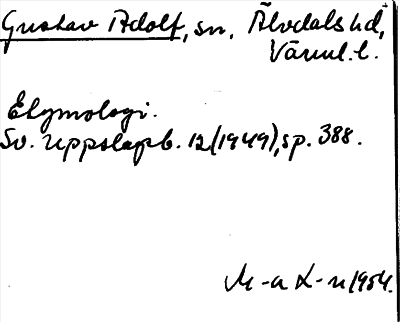 Gustav Adolf, sn, Älvdals hd,
Värml. l.
Etymologi.
Sv. Uppslagsb. 12(1949), sp. 388.
M-a L-n 1954.